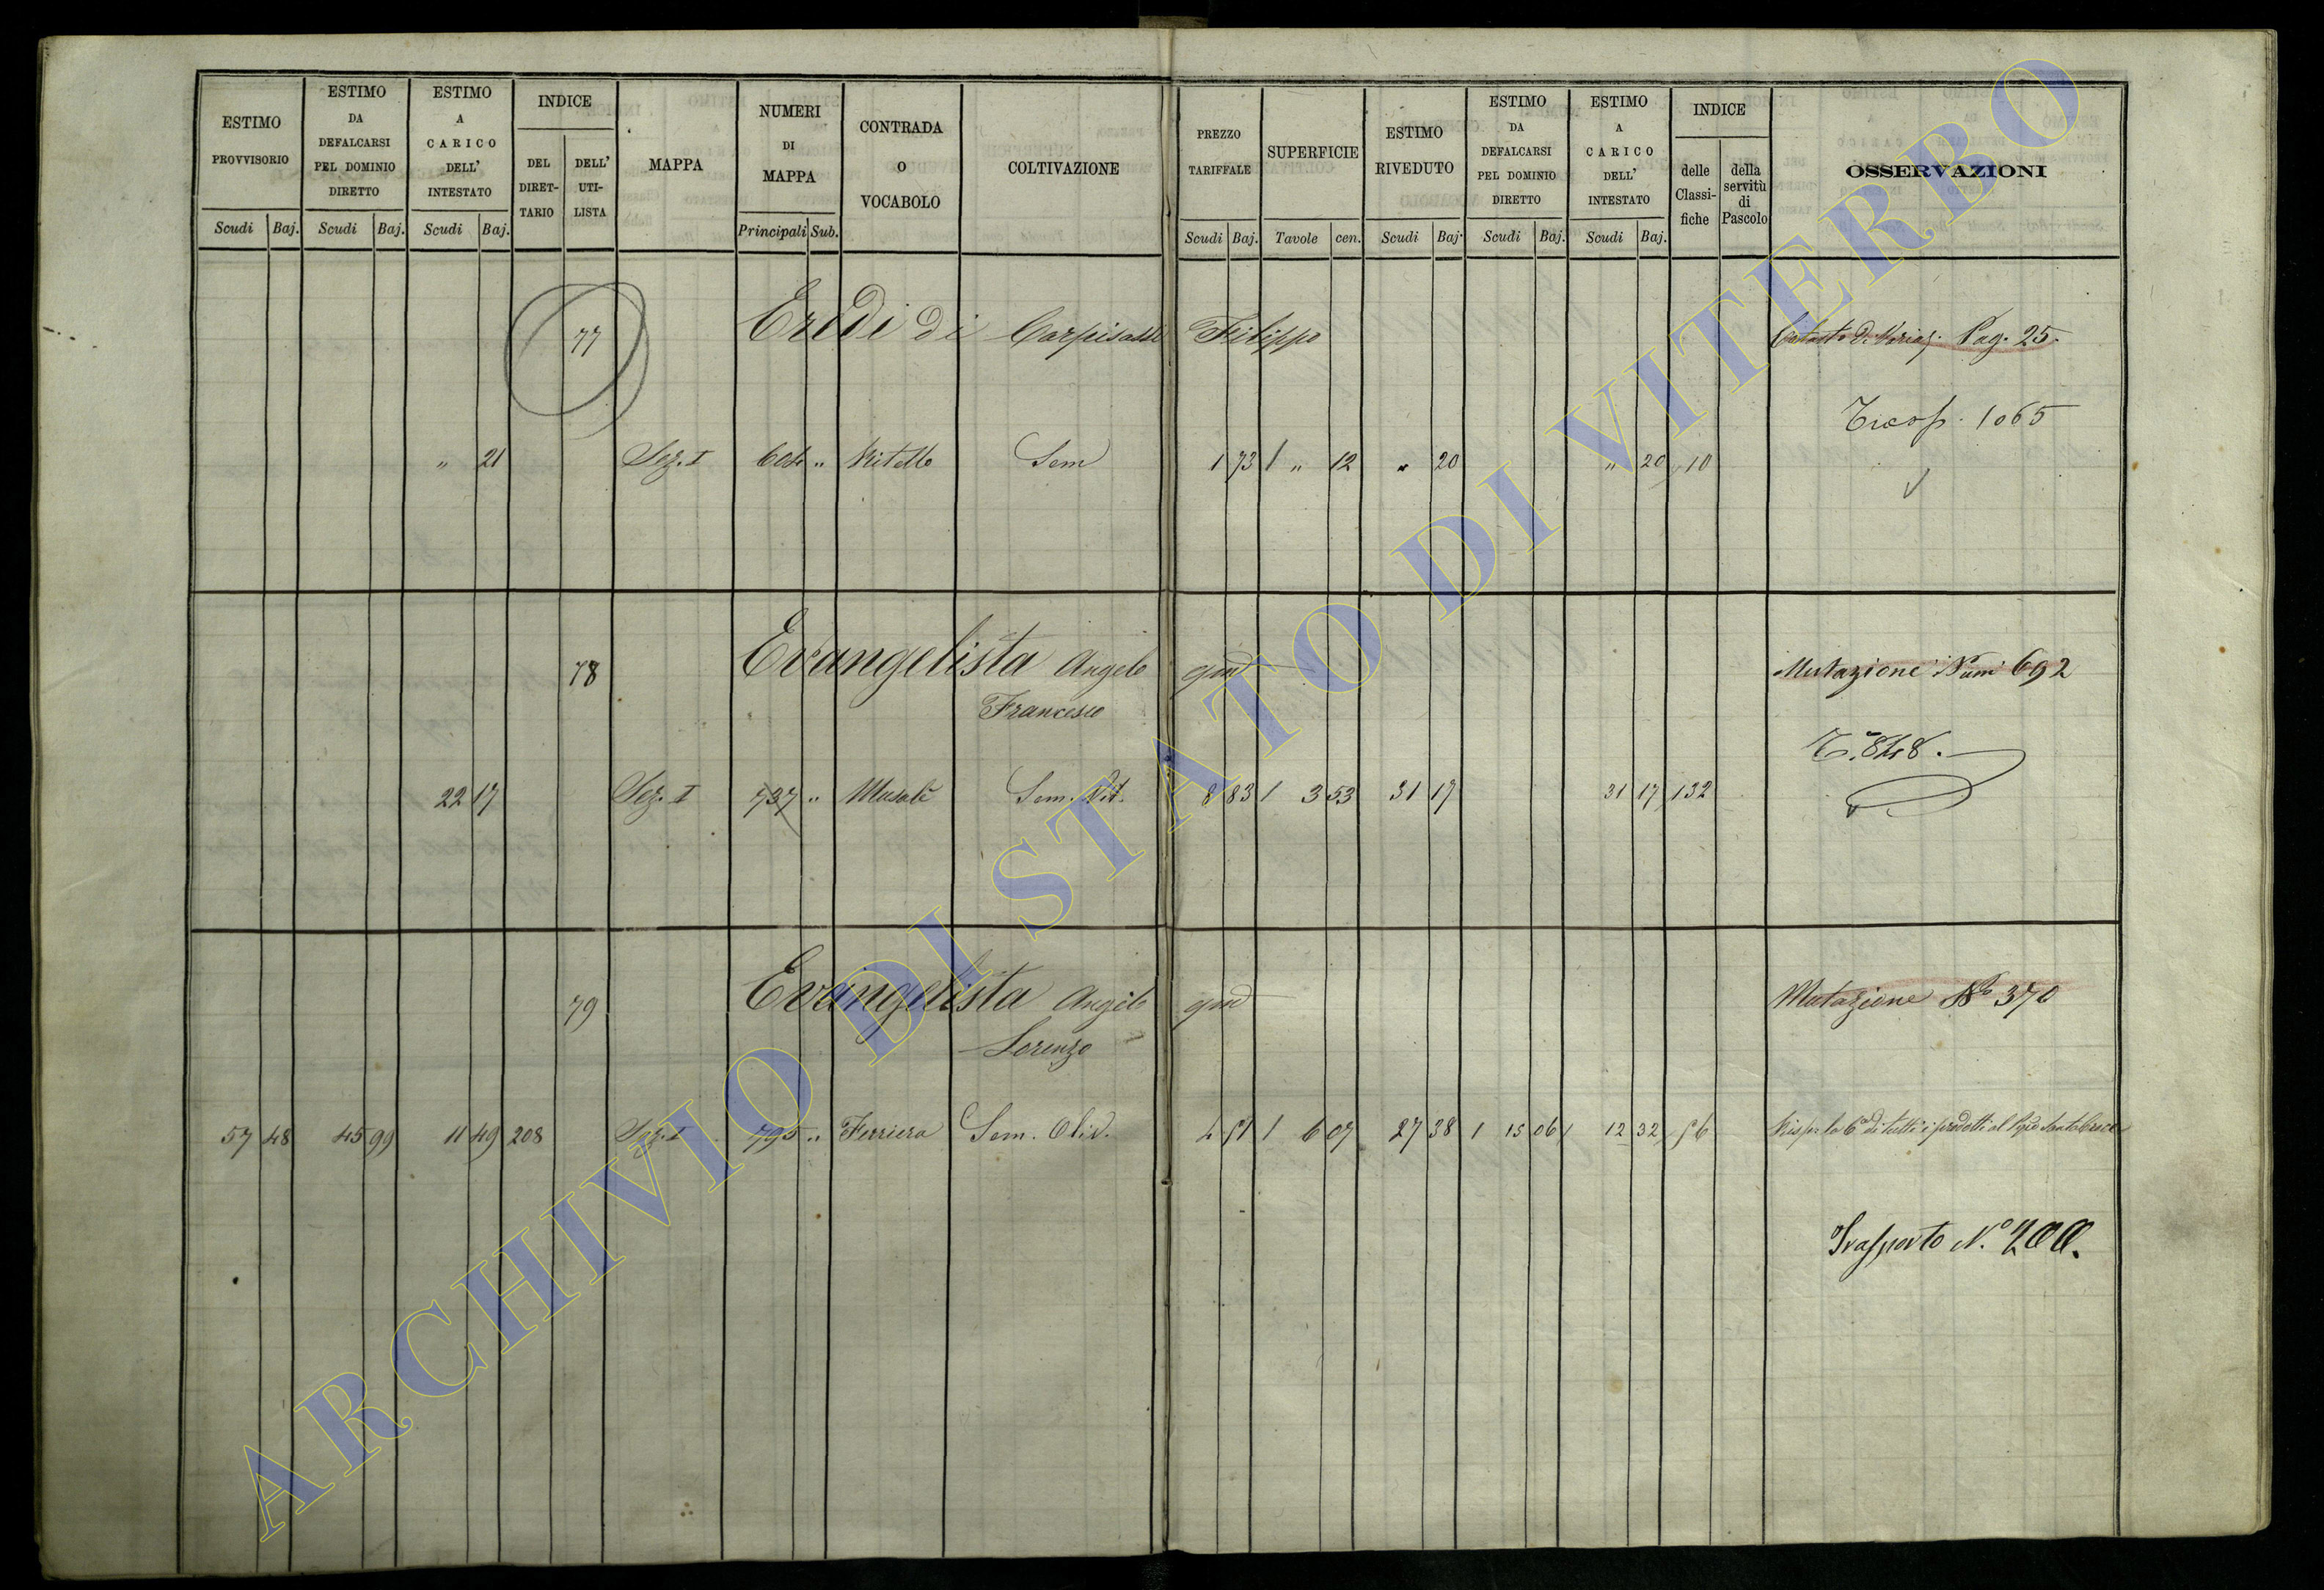 ESTIMO PROVVISORIO
Scudi Baj.
ESTIMO DA DEFALCARSI PEL DOMINIO DIRETTO
Scudi Baj.
ESTIMO A CARICO DELL' INTESTATO
Scudi Baj.
INDICE
DEL DIRET-TARIO
DELL' UTI-LISTA
MAPPA
NUMERI DI MAPPA
Principali Sub.
CONTRADA O VOCABOLO
COLTIVAZIONE
PREZZO TARIFFALE
Scudi Baj.
SUPERFICIE
Tavole cen.
ESTIMO RIVEDUTO
Scudi Baj.
ESTIMO DA DEFALCARSI PEL DOMINIO DIRETTO
Scudi Baj.
ESTIMO A CARICO DELL' INTESTATO
Scudi Baj.
INDICE
delle Classi-fiche
della servitù di Pascolo
OSSERVAZIONI
77 Eredi di Filippo Pag. 25.
1065
" 21 Sez. I 604 " Sem 1 73 / " 12 " 20 " 20 / 10
78 Evangelista Angelo qm Mutazione Num 692
Francesco
T. 848.
22 17 Sez. I 737 " Sem. Vit. 8 83 / 3 53 31 17 31 17 / 132
79 Evangelista Angelo qm Mutazione No 370
Lorenzo
57 48 45 99 11 49 208 Sez. I 795 " Ferriera Sem. Oliv. 4 51 / 6 07 27 38 / 15 06 / 12 32 / 56 di tutti i prodotti al
Trasporto N.° 200.
ARCHIVIO DI STATO DI VITERBO